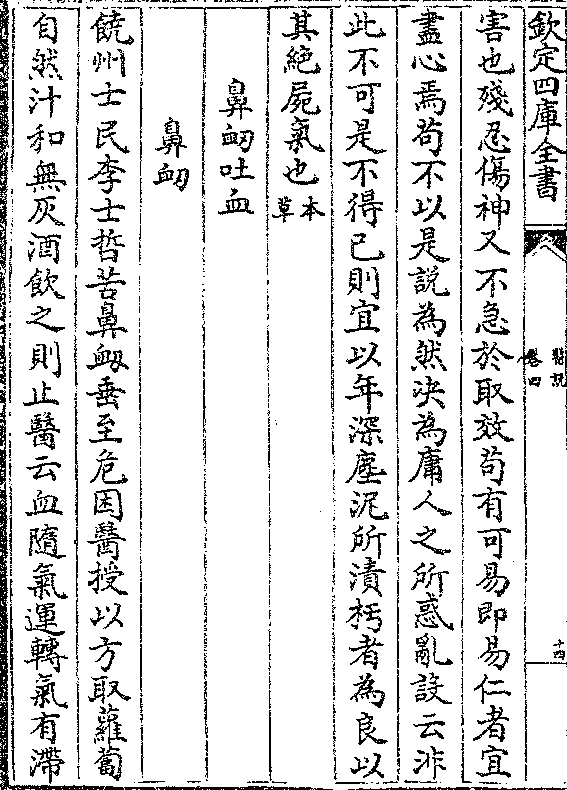 欽定四庫全書
醫說
卷四
十四
害也殘忍傷神又不急於取效苟有可易即易仁者宜
盡心焉苟不以是說為然決為庸人之所惑亂設云非
此不可是不得已則宜以年深塵泥所漬朽者為良以
其絕屍氣也本草
鼻衂吐血
鼻衂
饒州士民李士哲苦鼻衂垂至危困醫授以方取蘿蔔
自然汁和無灰酒飲之則止醫云血隨氣運轉氣有滯